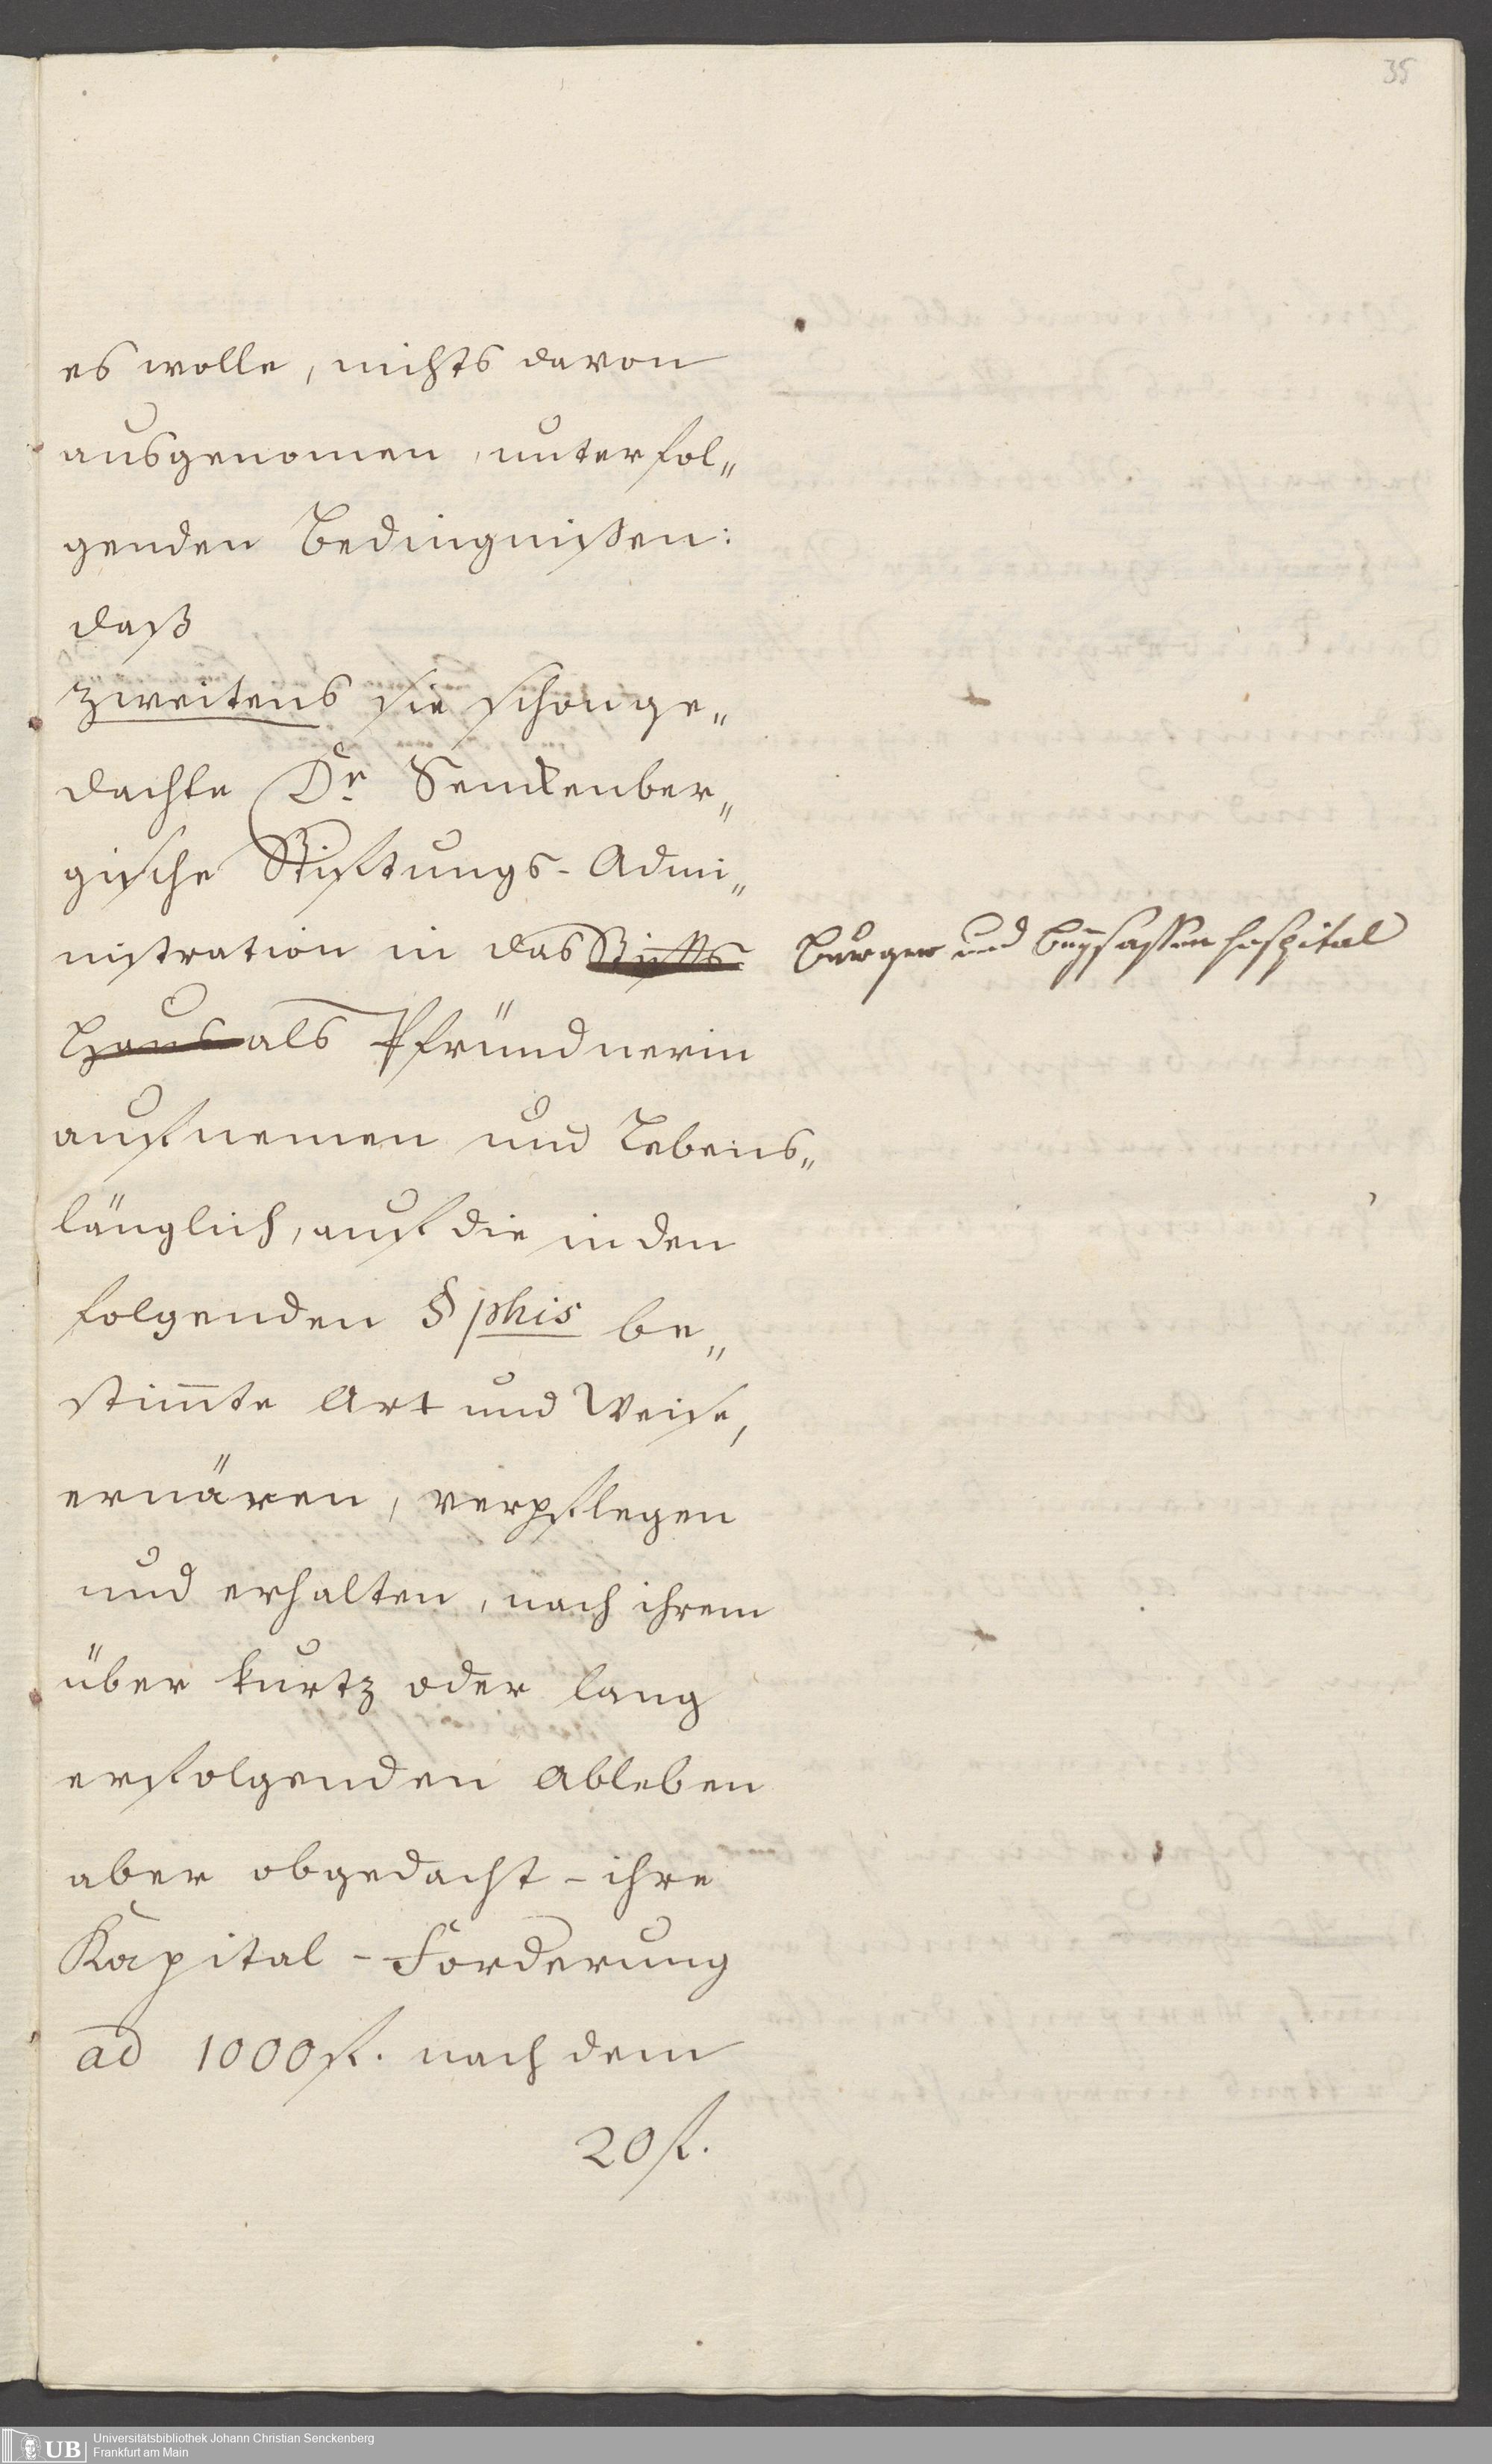 35
es wolle, nichts davon
ausgenomen, unter fol„
genden Bedingnißen:
daß
zweitens sie schonge„
dachte Dr Senckenber„
gische Stiftungs-Admi„
nistration in das Stifts Burger und Beysassen hospital
Haus als Pfründnerin
aufnemen und Lebens„
länglich, auf die in den
folgenden §phis be„
stimte Art und Weise,
ernären, verpflegen
und erhalten, nach ihrem
über kurtz oder lang
erfolgenden Ableben
aber obgedacht-ihre
Kapital-Forderung
ad 1000 fl. nach dem
20 fl.
UB Universitätsbibliothek Johann Christian Senckenberg
Frankfurt am Main